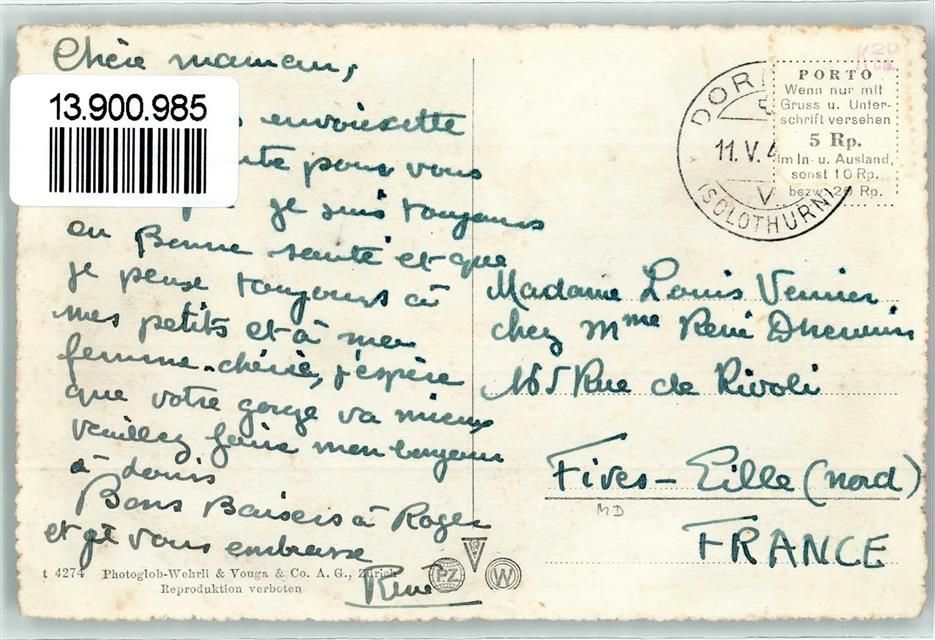 Chère maman,
13.900.985
envoie cette
pour vous
je suis toujours
en Bonne santé et que
je pense toujours à
mes petits et à ma
femme chérie, j'espère
que votre gorge va mieux
veuillez faire mon bonjour
à Louis
Bons Baisers à Roger
et je vous embrasse
René
t 4274 Photoglob-Wehrli & Vouga & Co. A. G., Zürich
Reproduktion verboten
PZ
W
DOR
11.V.4
V
(SOLOTHURN)
K 20
PORTO
Wenn nur mit
Gruss u. Unter-
schrift versehen
5 Rp.
im In- u. Ausland,
sonst 10 Rp.
bezw. 20 Rp.
Madame Louis Vernier
chez Mme René
Rue de Rivoli
Fives-Lille (nord)
MD
FRANCE